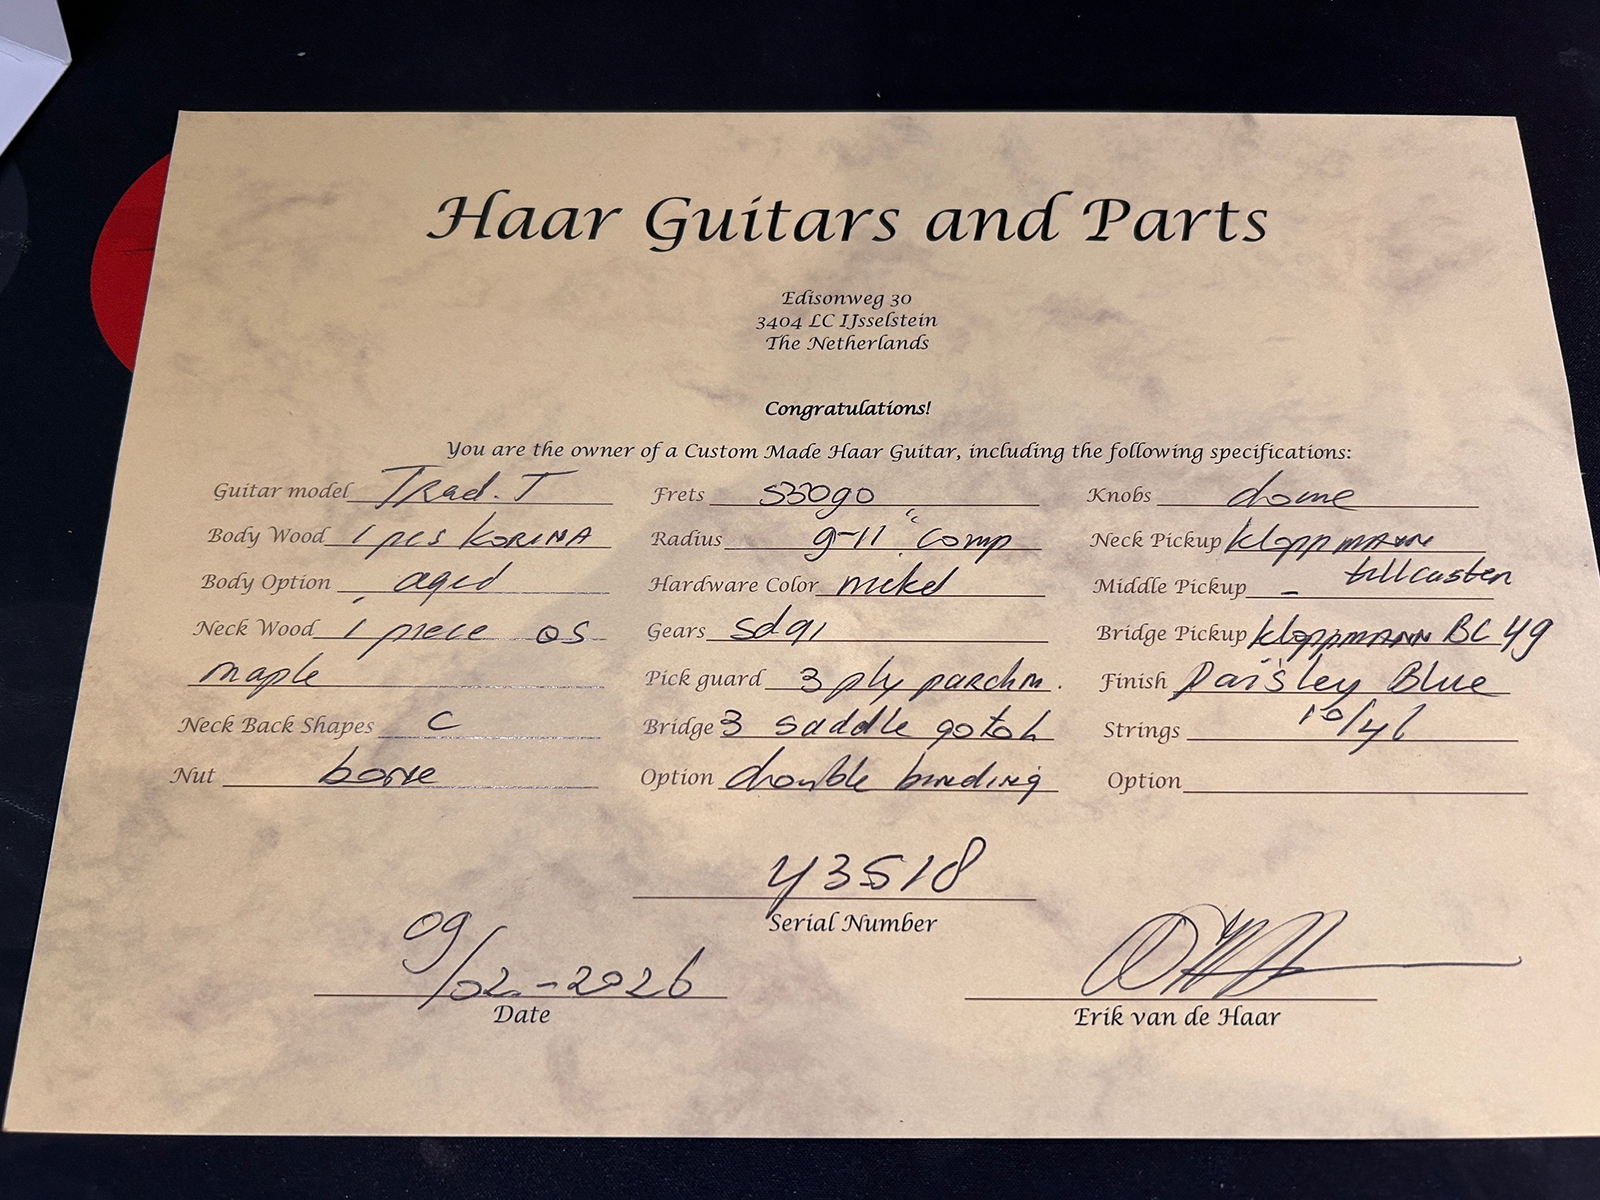 Haar Guitars and Parts
Edisonweg 30
3404 LC IJsselstein
The Netherlands
Congratulations!
You are the owner of a Custom Made Haar Guitar, including the following specifications:
Guitar model Trad. T
Body Wood 1 pcs KORINA
Body Option aged
Neck Wood 1 piece QS
maple
Neck Back Shapes C
Nut bone
Frets S3090
Radius 9-11" comp
Hardware Color nickel
Gears sd91
Pick guard 3 ply parchm.
Bridge 3 saddle gotoh
Option double binding
Knobs dome
Neck Pickup kloppmann
tellcaster
Middle Pickup -
Bridge Pickup kloppmann BC 49
Finish Paisley Blue
Strings 10/46
Option
Y3518
Serial Number
09/02-2026
Date
Erik van de Haar